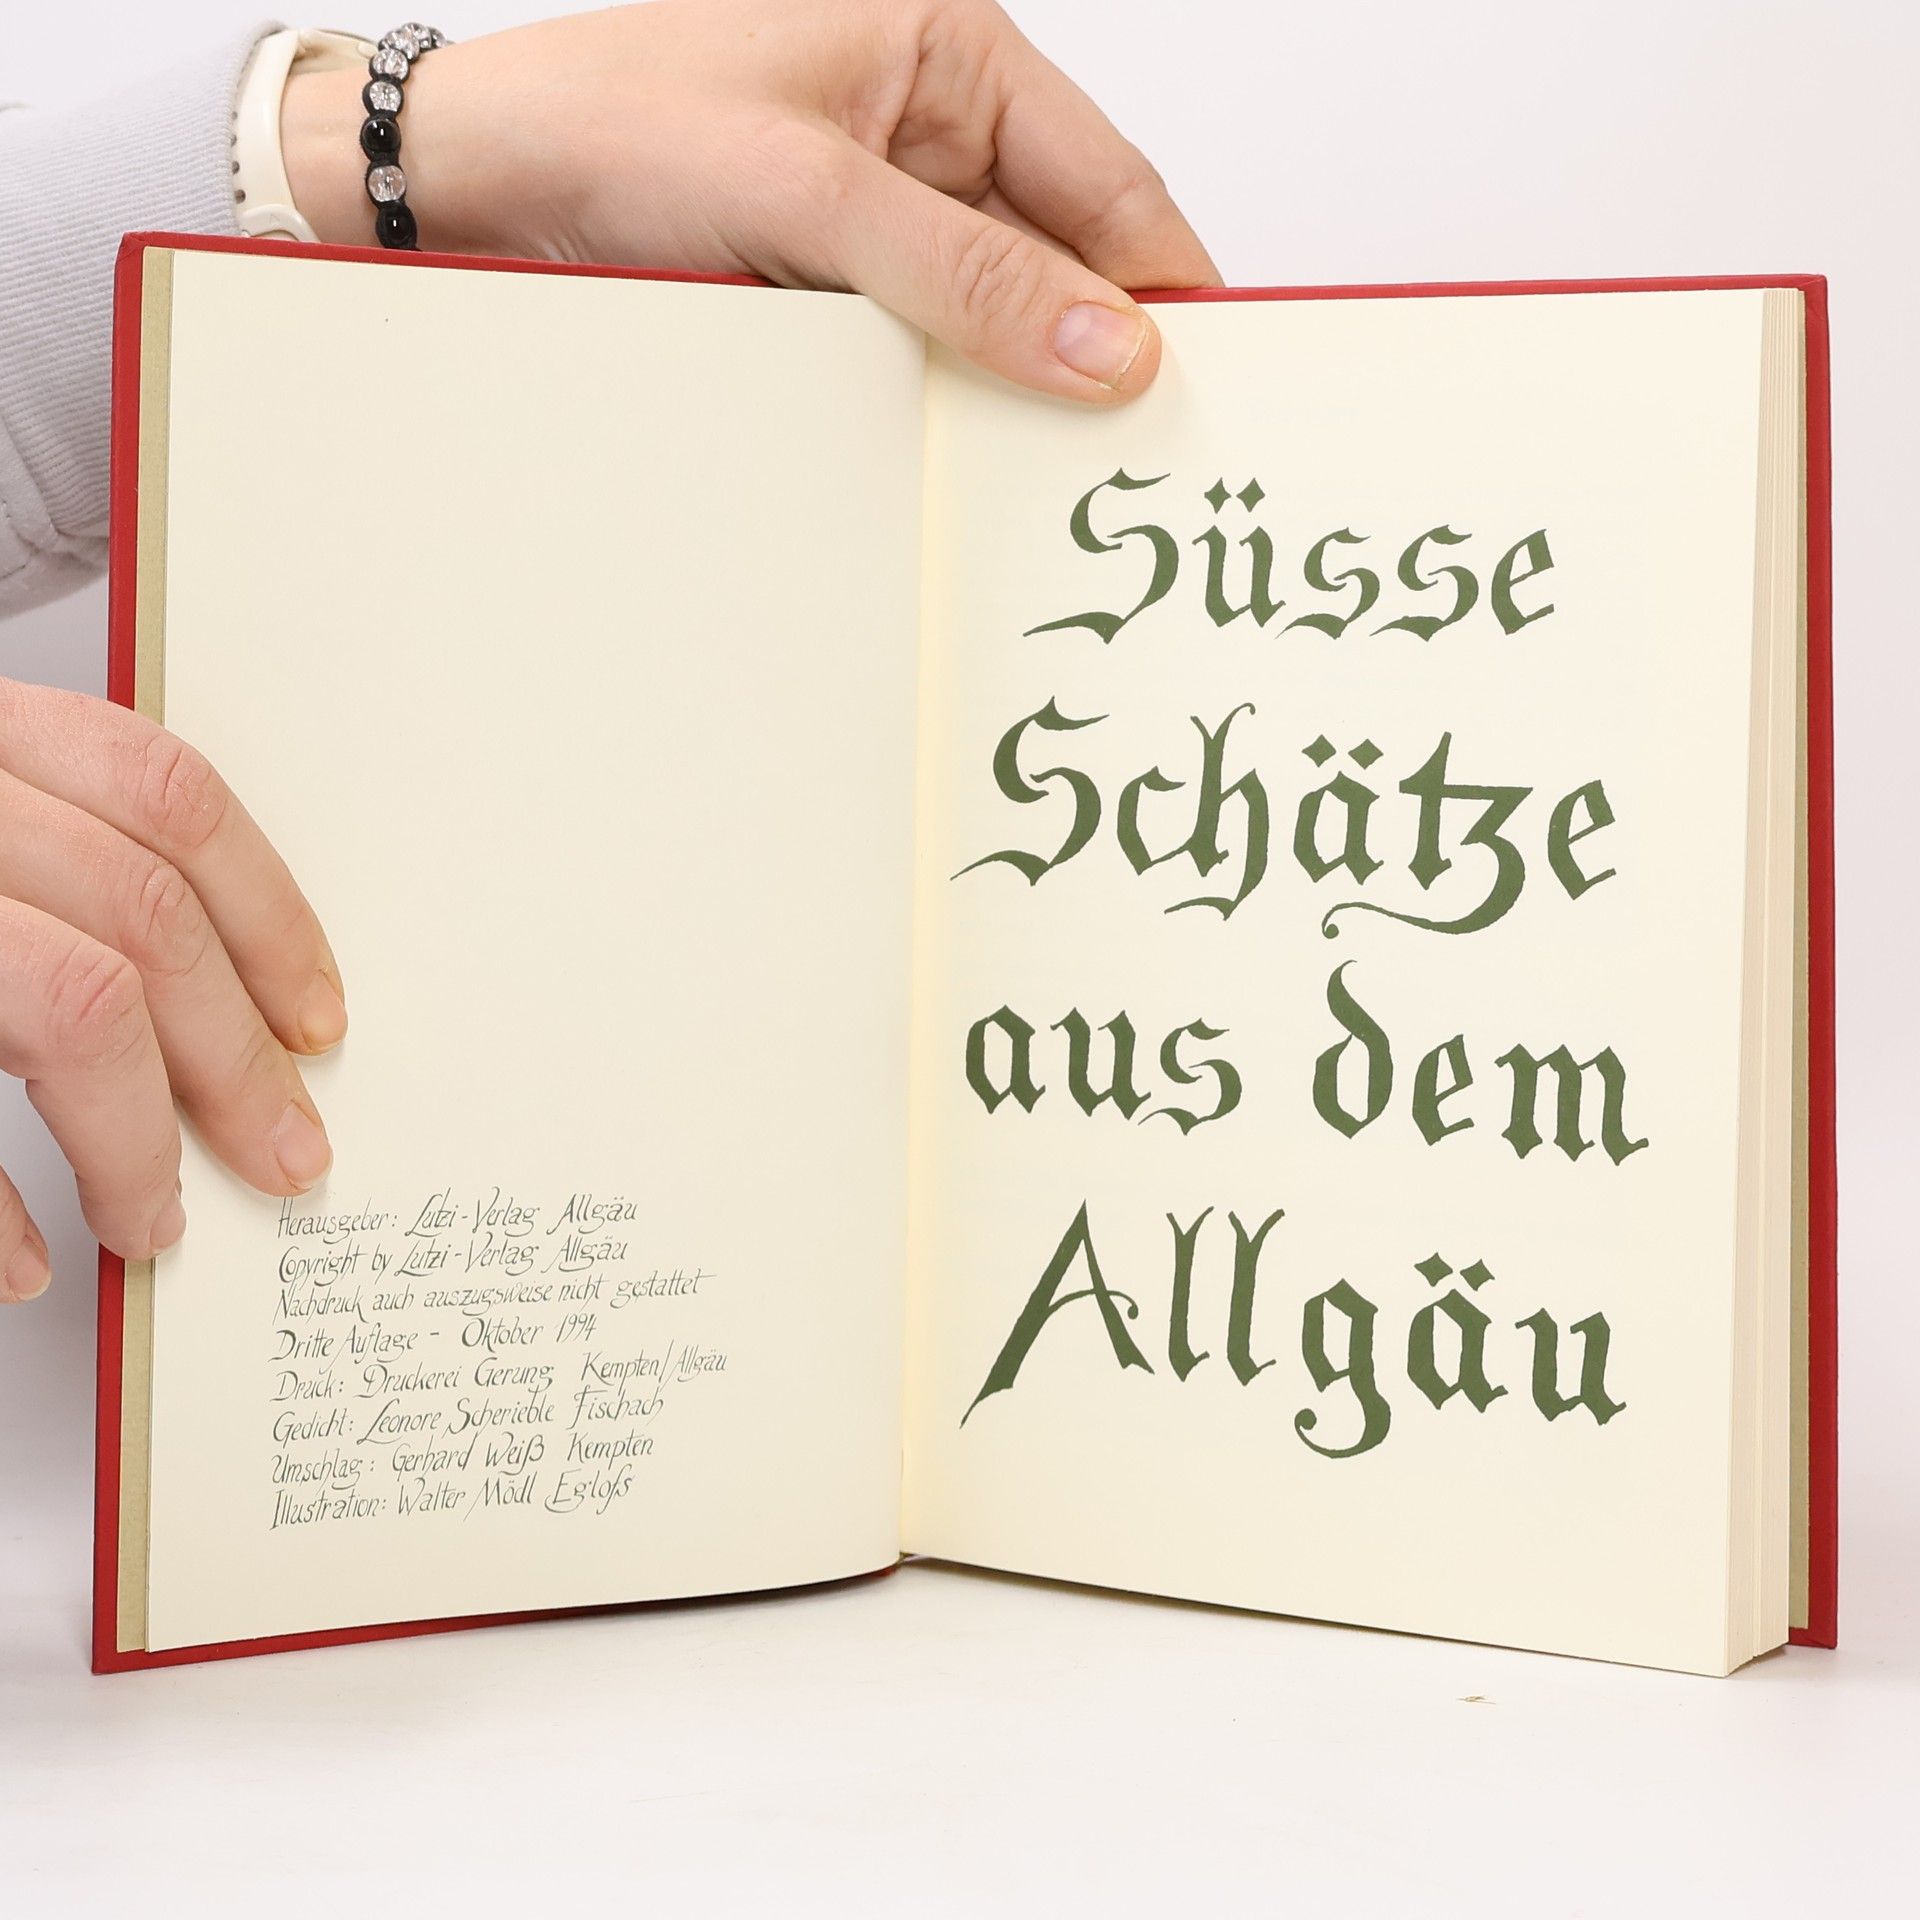 Herausgeber: Lutzi-Verlag Allgäu
Copyright by Lutzi-Verlag Allgäu
Nachdruck auch auszugsweise nicht gestattet
Dritte Auflage - Oktober 1994
Druck: Druckerei Gerung Kempten/Allgäu
Gedicht: Leonore Scherieble Fischach
Umschlag: Gerhard Weiß Kempten
Illustration: Walter Mödl Eglofs
Süsse
Schätze
aus dem
Allgäu